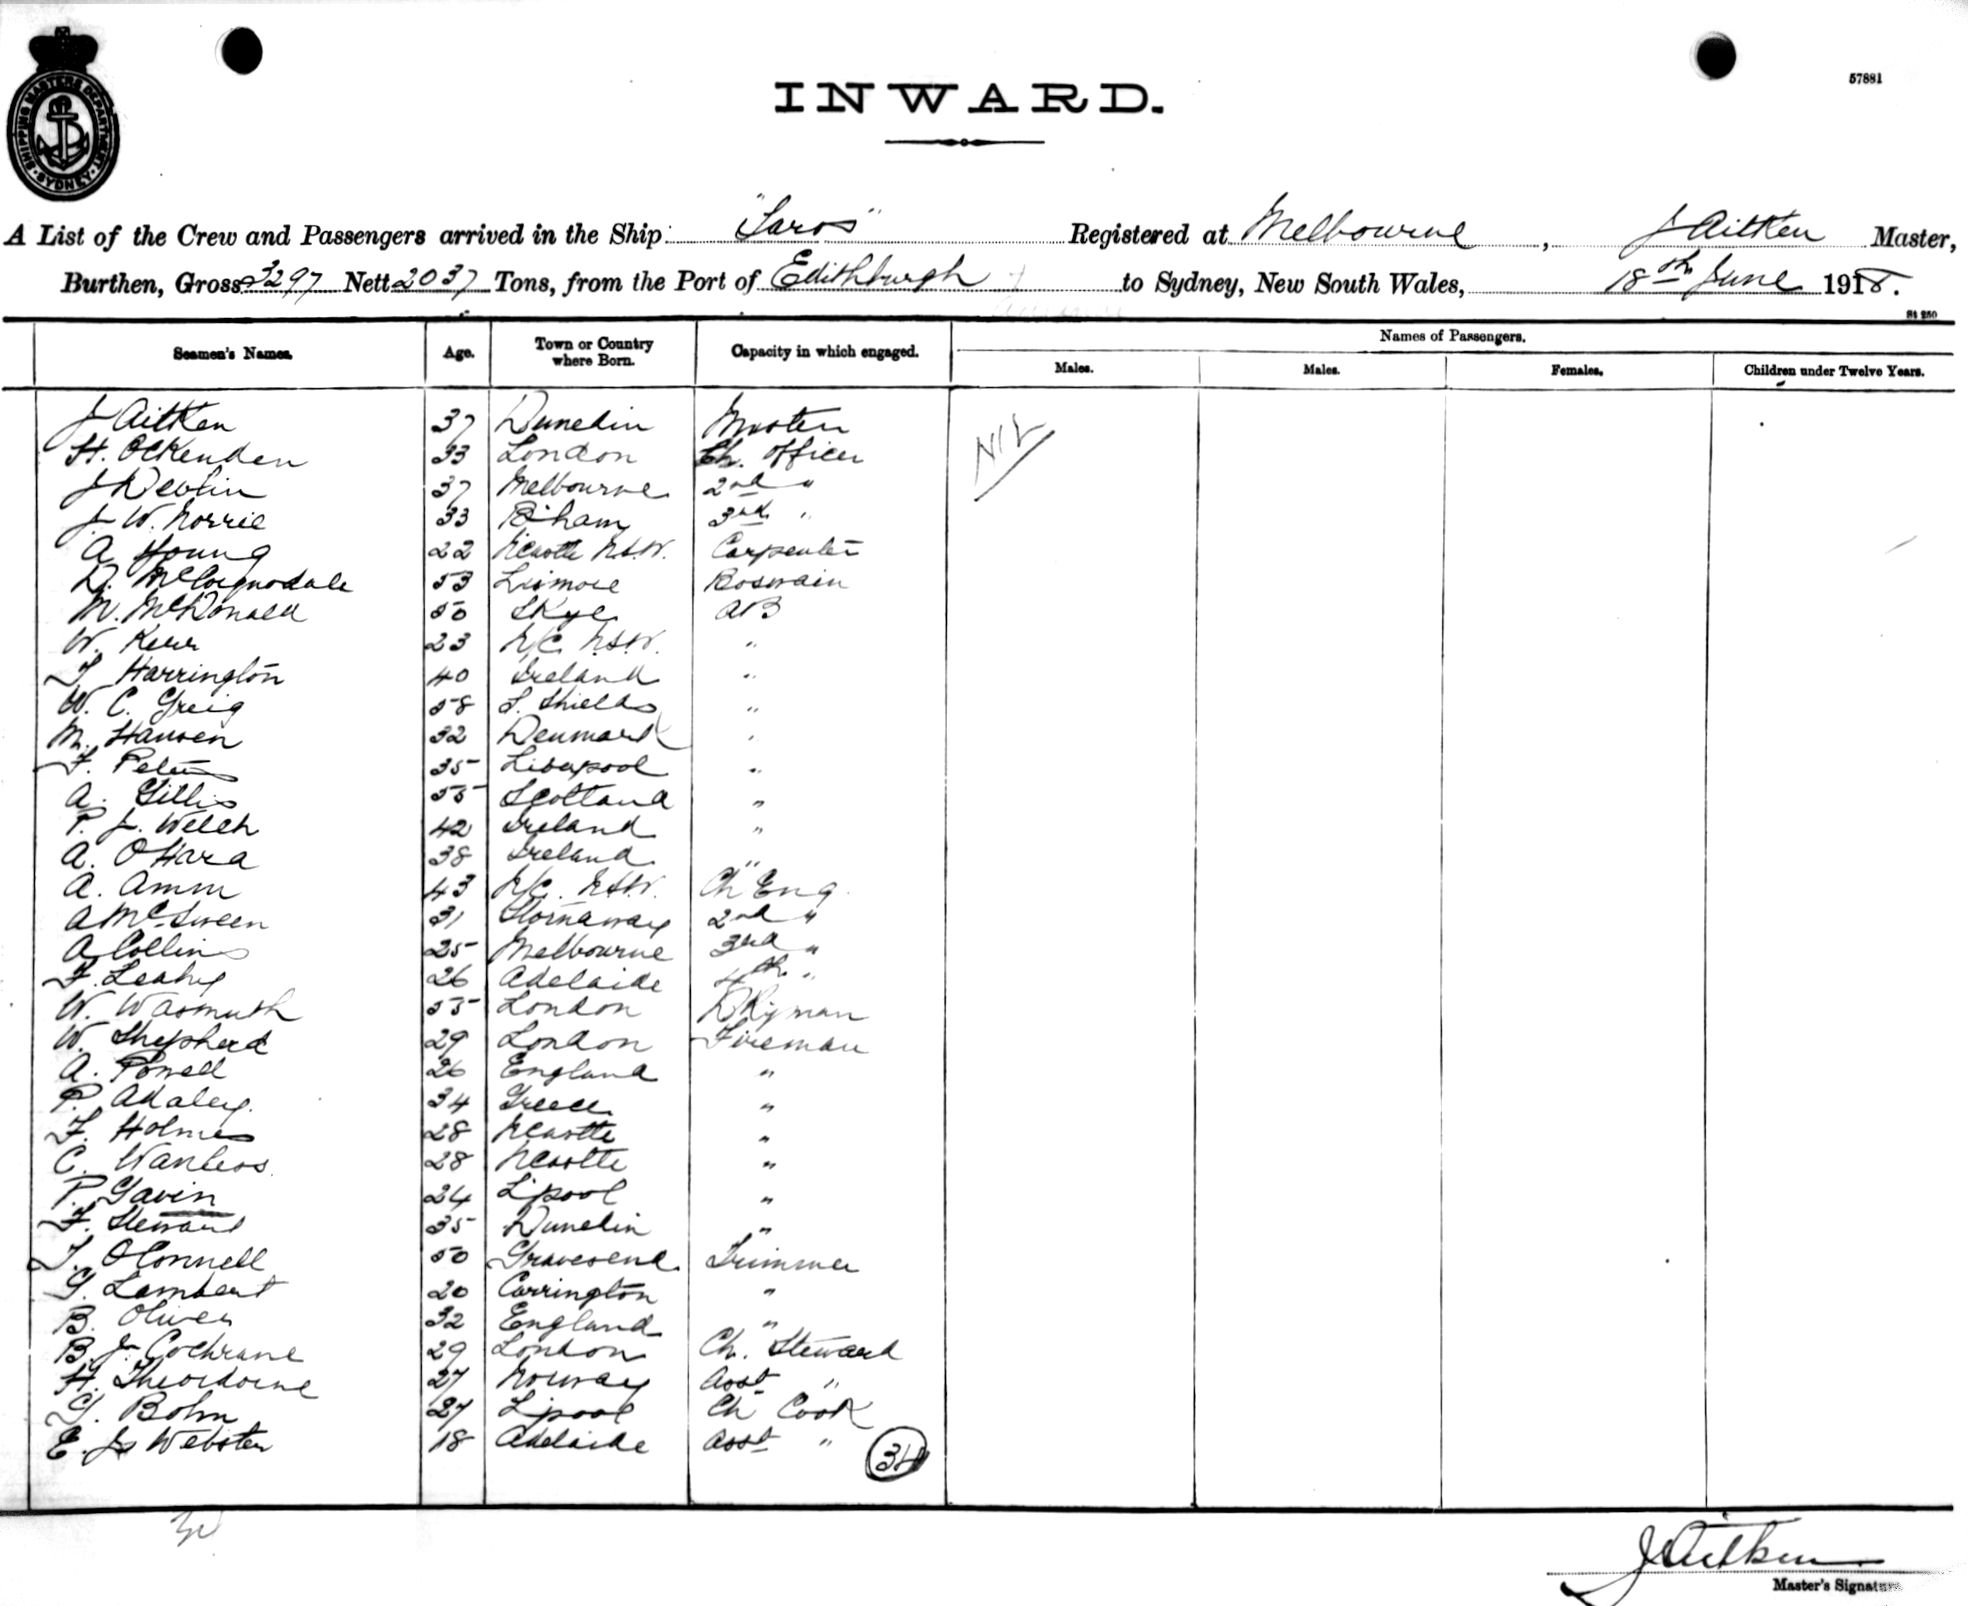 SHIPPING MASTERS DEPARTMENT · SYDNEY ·
57881
INWARD.
A List of the Crew and Passengers arrived in the Ship "Taros" Registered at Melbourne, J Aitken Master,
Burthen, Gross 3297 Nett 2037 Tons, from the Port of Edithburgh to Sydney, New South Wales, 18th June 1918.
St 250
Seamen's Names. Age. Town or Country where Born. Capacity in which engaged. Names of Passengers.
Males. Males. Females. Children under Twelve Years.
J Aitken 37 Dunedin Master NIL
H. Ockenden 33 London Ch. Officer
J Devlin 37 Melbourne 2nd "
J. W. Norrie 33 B'ham 3rd "
A Young 22 N'castle N.S.W. Carpenter
D. McCorquodale 53 Lismore Boswain
M. McDonald 50 Skye AB
W. Kerr 23 N/C N.S.W. "
T Harrington 40 Ireland "
W. C. Greig 58 S. Shields "
M. Hansen 32 Denmark "
F. Peters 35 Liverpool "
A. Gillis 55 Scotland "
P. J. Welch 42 Ireland "
A. O'Hara 38 Ireland "
A. Amm 43 N/C. N.S.W. Ch Eng.
A McSween 31 Stornaway 2nd "
A Collins 25 Melbourne 3rd "
F. Leahy 26 Adelaide 4th "
W. Wasmuth 55 London Dkyman
W. Shepherd 29 London Fireman
A. Powell 26 England "
P. Adaley. 34 Greece "
F. Holmes 28 N'castle "
C. Wanless 28 N'castle "
P. Gavin 24 L'pool "
F. Stewart 35 Dunedin "
T. O'Connell 50 Gravesend Trimmer
G. Lambert 20 Carrington "
B. Oliver 32 England "
B. J. Cochrane 29 London Ch. Steward
H. Theordorne 27 Norway Asst "
G. Bohn 27 L'pool Ch Cook
E. J. Webster 18 Adelaide Asst "
34
J Aitken
Master's Signature